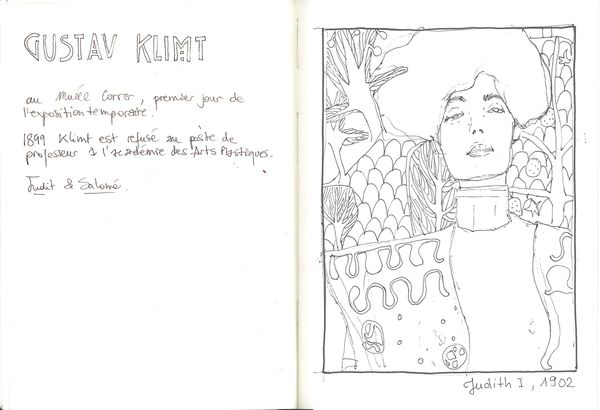 GUSTAV KLIMT
au Musée Correr, premier jour de
l'exposition temporaire.
1899 Klimt est refusé au pôste de
professeur à l'académie des Arts Plastiques.
Judit & Salomé.
Judith I, 1902